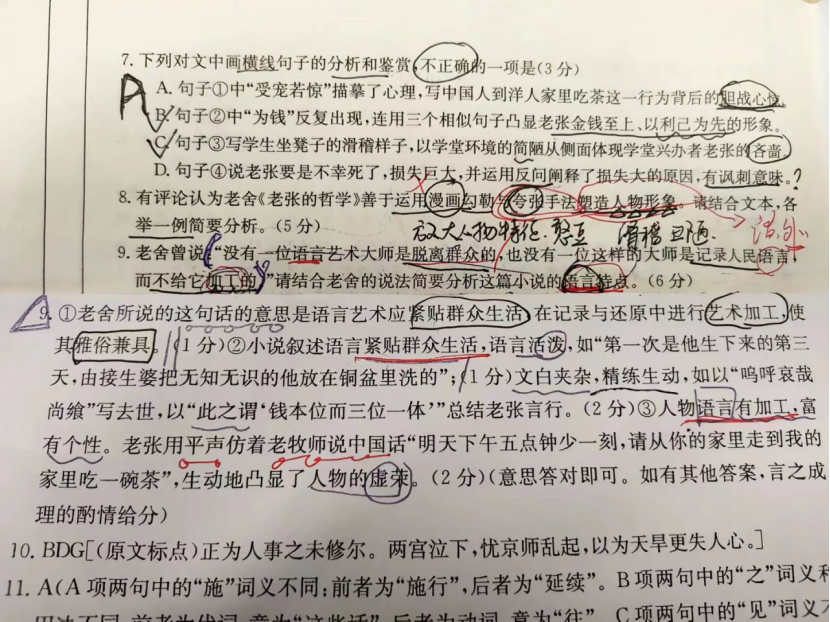 7. 下列对文中画横线句子的分析和鉴赏,不正确的一项是(3分)
A
A. 句子①中“受宠若惊”描摹了心理,写中国人到洋人家里吃茶这一行为背后的胆战心惊。
B. 句子②中“为钱”反复出现,连用三个相似句子凸显老张金钱至上、以利己为先的形象。
C. 句子③写学生坐凳子的滑稽样子,以学堂环境的简陋从侧面体现学堂兴办者老张的吝啬。
D. 句子④说老张要是不幸死了,损失巨大,并运用反问阐释了损失大的原因,有讽刺意味。?
8. 有评论认为老舍《老张的哲学》善于运用漫画勾勒与夸张手法塑造人物形象。请结合文本,各
举一例简要分析。(5分)
放大人物特征. 滑稽丑陋.
9. 老舍曾说“没有一位语言艺术大师是脱离群众的,也没有一位这样的大师是记录人民语言,
而不给它加工的”请结合老舍的说法简要分析这篇小说的语言特点。(6分)
9. ①老舍所说的这句话的意思是语言艺术应紧贴群众生活,在记录与还原中进行艺术加工,使
其雅俗兼具。(1分)②小说叙述语言紧贴群众生活,语言活泼,如“第一次是他生下来的第三
天,由接生婆把无知无识的他放在铜盆里洗的”;(1分)文白夹杂,精练生动,如以“呜呼哀哉
尚飨”写去世,以“此之谓‘钱本位而三位一体’”总结老张言行。(2分)③人物语言有加工,富
有个性。老张用平声仿着老牧师说中国话“明天下午五点钟少一刻,请从你的家里走到我的
家里吃一碗茶”,生动地凸显了人物的虚荣。(2分)(意思答对即可。如有其他答案,言之成
理的酌情给分)
10. BDG[(原文标点)正为人事之未修尔。两宫泣下,忧京师乱起,以为天旱更失人心。]
11. A(A项两句中的“施”词义不同;前者为“施行”,后者为“延续”。B项两句中的“之”词义
用法不同,前者为代词,意为“这些话”,后者为动词,意为“往”。C项两句中的“见”词义不